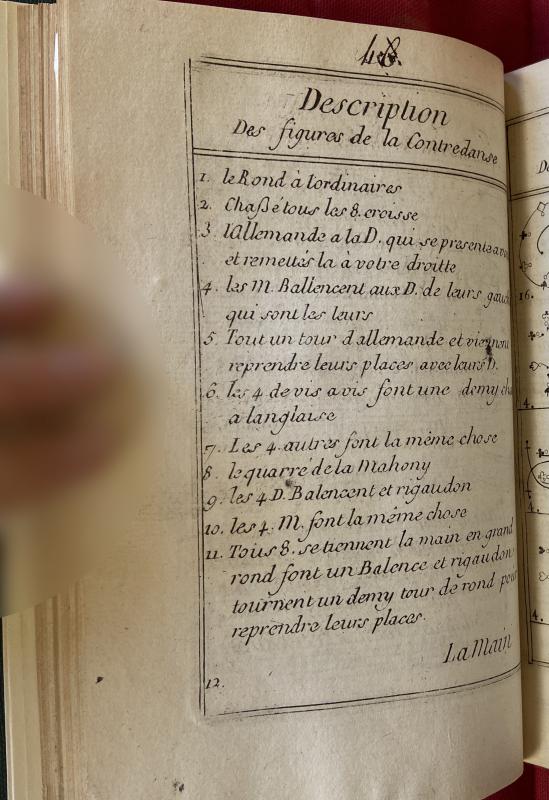 48.
Description
Des figures de la Contredanse
1. le Rond à lordinaires
2. Chaßé tous les 8. croisse
3. lallemande a la D. qui se presente
et remettés la à votre droitte
4. les M. Ballencent aux D. de leurs
qui sont les leurs
5. Tout un tour dallemande et viennent
reprendre leurs places avec leurs D.
6. les 4 de vis avis font une demy
a langlaise
7. Les 4 autres font la même chose
8. le quarré de la Mahony
9. les 4 D. Balencent et rigaudon
10. les 4. M. font la même chose
11. Tous 8. se tiennent la main en grand
rond font un Balence et rigaudon
tournent un demy tour de rond pour
reprendre leurs places.
La Main
12.
4.
4.
4.